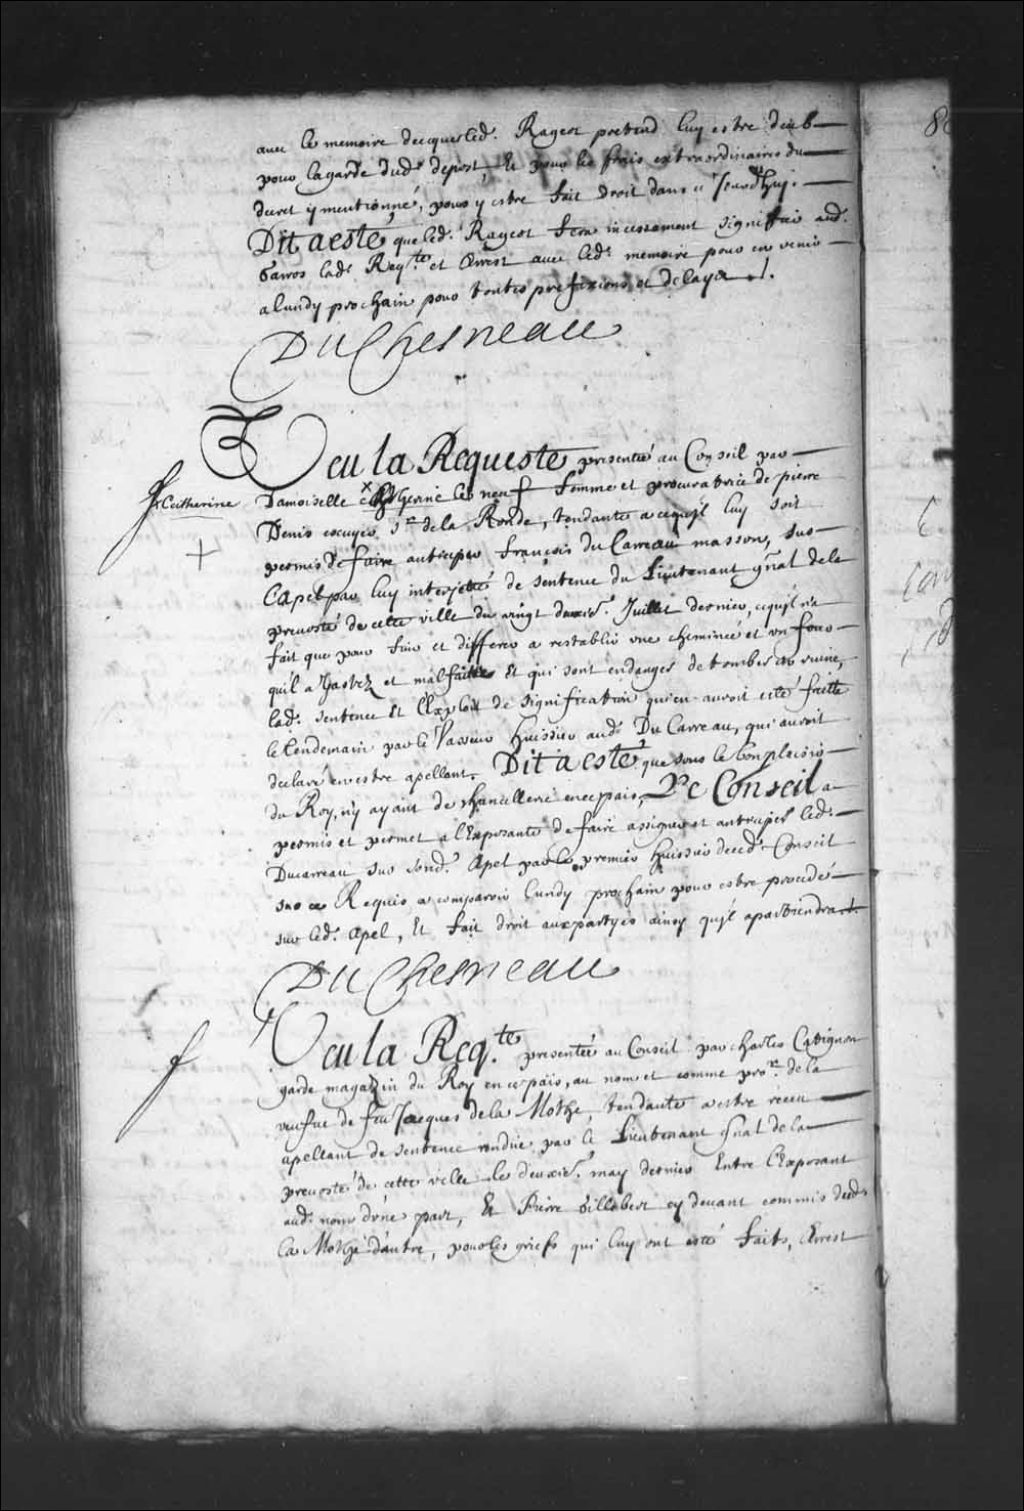 auec le memoire de ce que led. Rageot pretend luy estre deub
pour la garde dud. depost, Et pour les frais extraordinaires du
decret y mentionné, pour y estre fait droit dans ce Jourd'huy.
Dit a esté que led. Rageot fera incessament signiffier aud.
lad. Reqte. et Arrest auec led. memoire pour en venir
a lundy prochain pour toutes prefixions et delaya ./.
DuChesneau
80
Veu la Requeste presenteé au Conseil par
Damoiselle Catherine le neuf femme et procuratrice de pierre
x Catherine
Denis escuyer Sr. de la Ronde, tendante a ce qu'il luy soit
permis de faire anticiper François du Carreau masson, sur
l'apel par luy interjetté de sentence du Lieutenant gñal de la
preuosté de cette ville du vingt deuxie. Juillet dernier, ce qu'il n'a
fait que pour fuir et differer a restablir vne cheminée et vn four
qu'il a gastez et mal faitte Et qui sont en danger de tomber en ruine,
lad. sentence Et l'Exploit de signification qui en auroit esté faitte
le lendemain par le Vasseur huissier aud. Du Carreau, qui auroit
declaré en estre apellant. Dit a esté que sous le bon plaisir
du Roy, n'y ayant de chancellerie en ce pais, Le Conseil a
permis et permet a l'Exposante de faire assigner et anticiper led.
Ducarreau sur sond. Apel par le premier huissier de ced. Conseil
sur ce Requis a comparoir lundy prochain pour estre procedé
sur led. apel, Et fait droit aux partyes ainsy qu'jl apartiendra ./.
DuChesneau
Veu la Reqte. presenteé au Conseil par charles Catignon
garde magazin du Roy en ce païs, au nom et comme pror. de la
veufue de feu Jacques de la Mothe, tendante a estre receu
apellant de sentence rendüe par le Lieutenant gñal de la
preuosté de cette ville le deuxie. may dernier Entre l'Exposant
aud. nom d'vne part, Et Pierre Gillebert cy deuant commis dud.
la Mothe d'autre, pour les griefs qui luy ont esté faits, Arrest